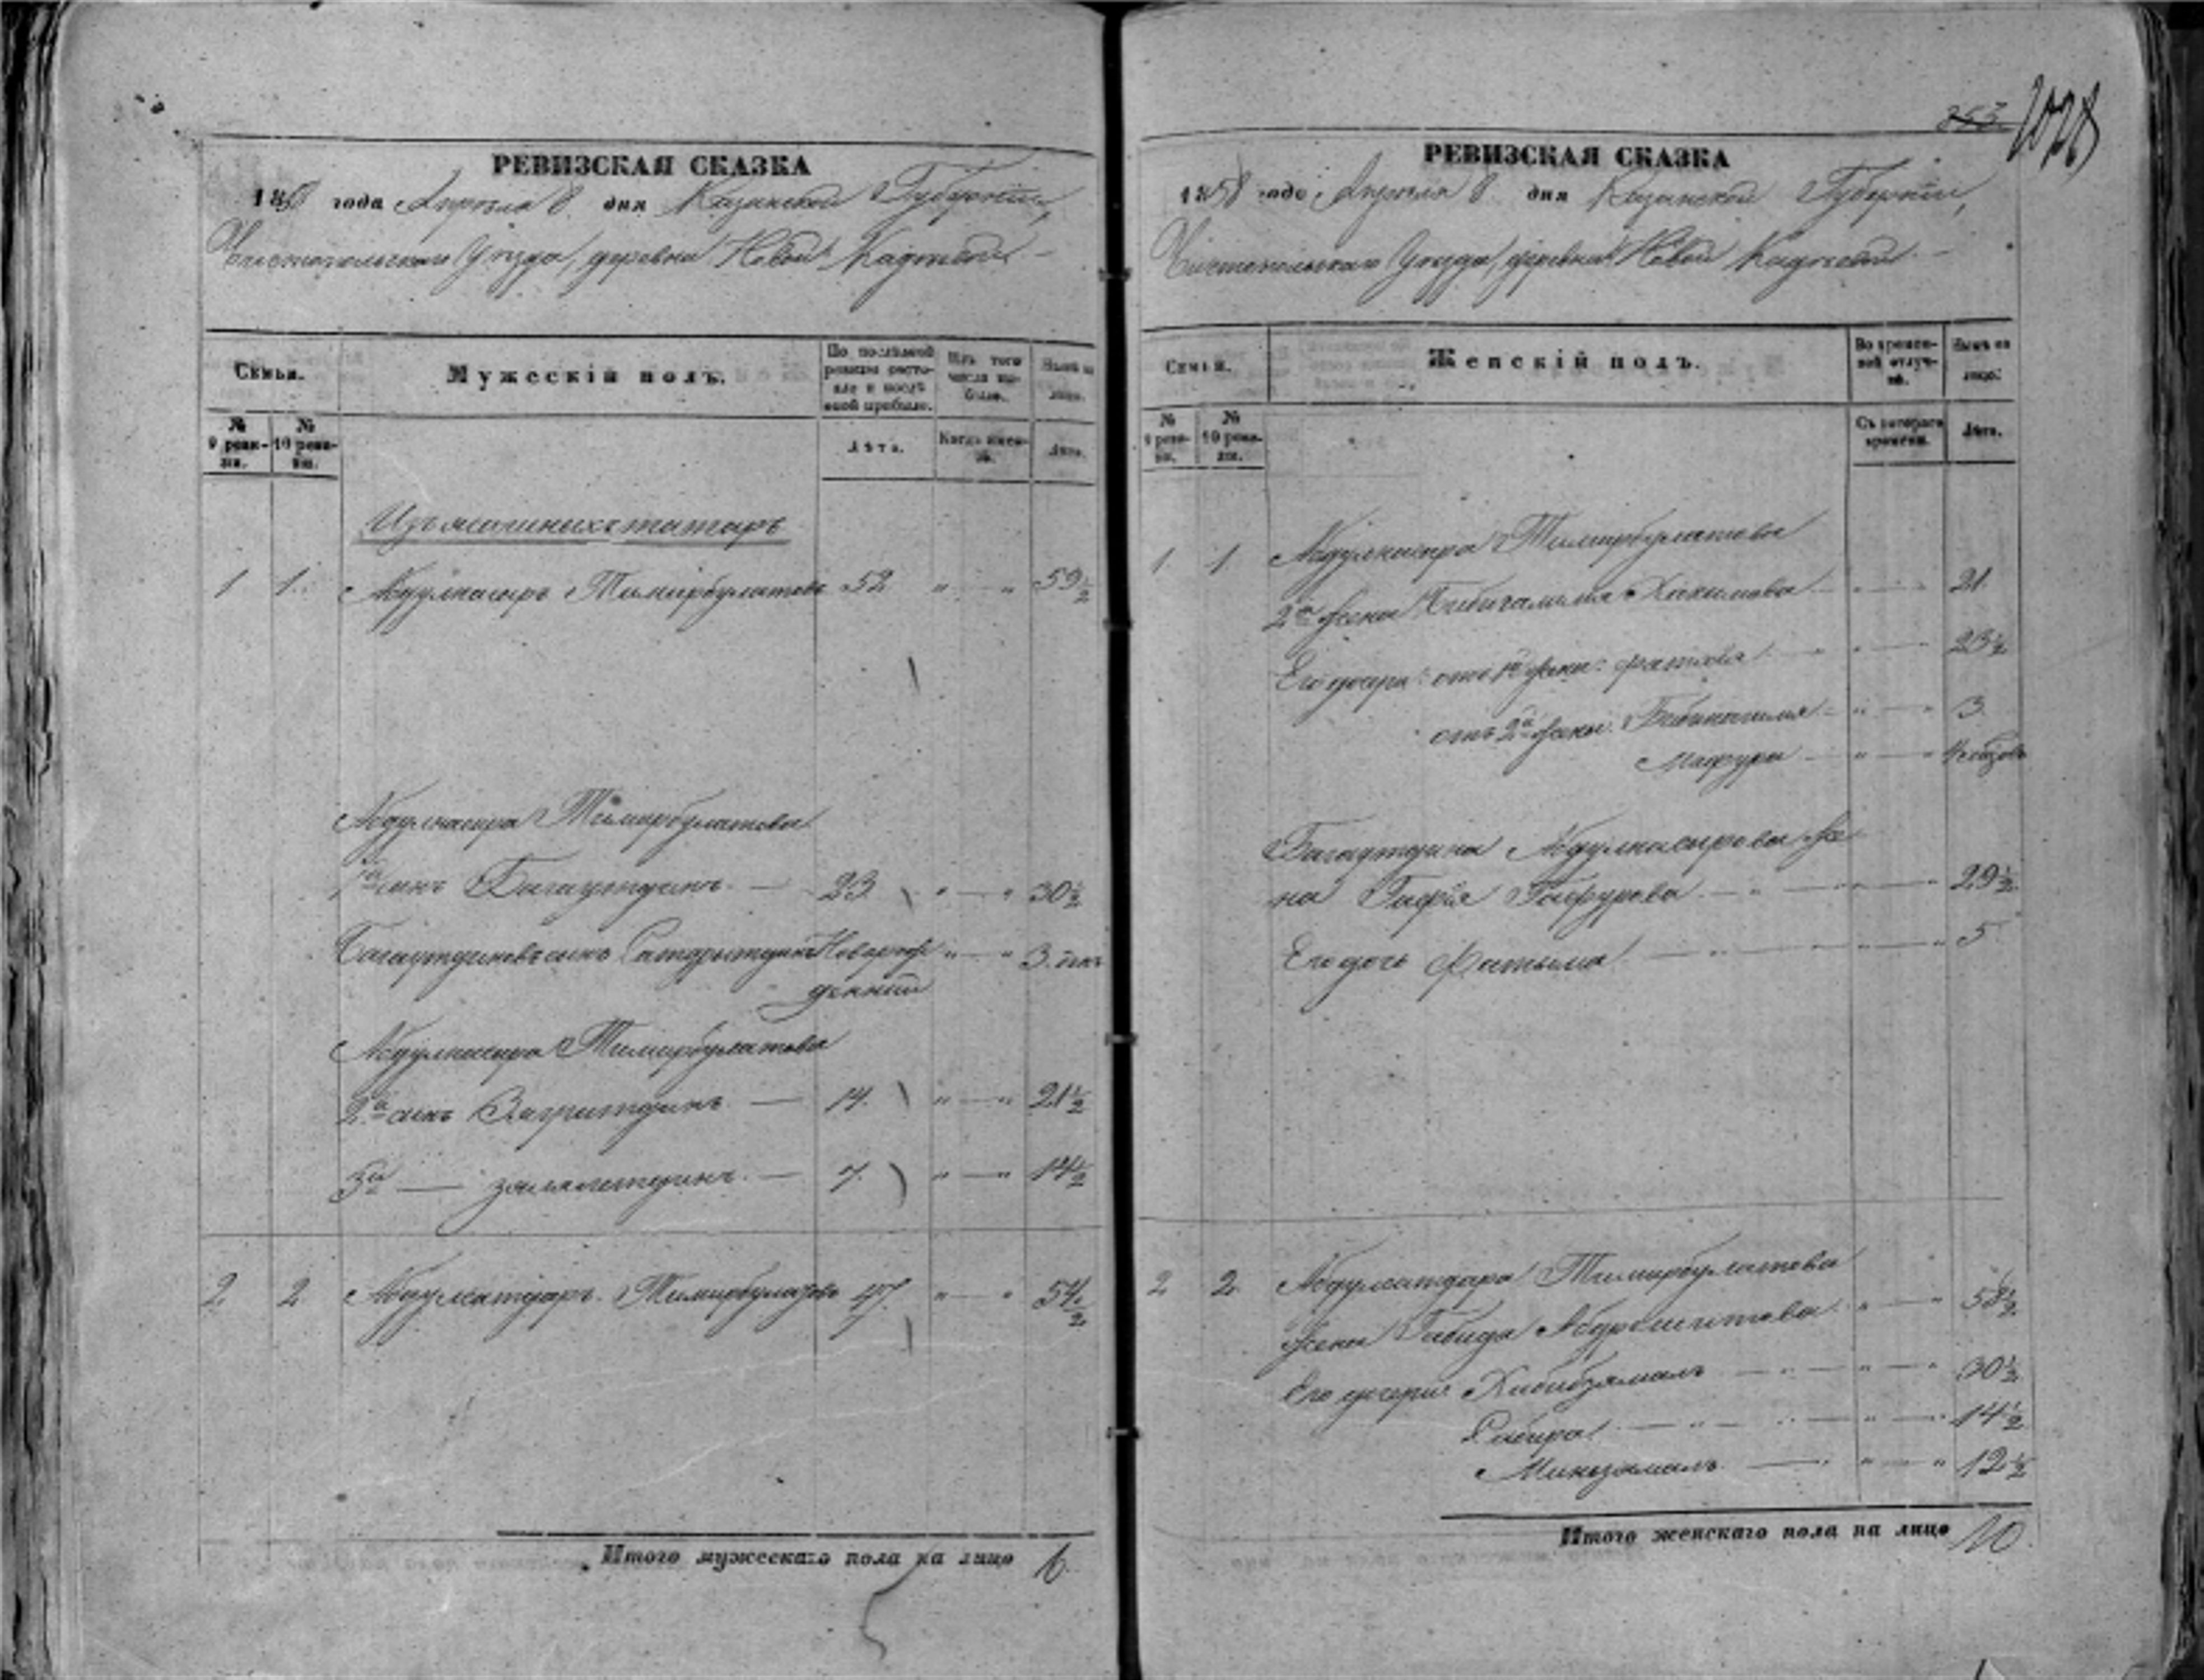 РЕВИЗСКАЯ СКАЗКА
1858 года Апреля 8 дня Казанской Губернии,
Чистопольскаго Уезда, деревни Новой
Семьи.
Мужескій полъ.
По послѣдней ревизіи состояло и послѣ оной прибыло.
Изъ того числа выбыло.
Нынѣ на лицо.
№ 9 ревизіи.
№ 10 ревизіи.
Лѣта.
Когда именно.
Лѣта.
Изъ ясашныхъ татаръ
1 1. Абдулнасыръ Тимирбулатовъ 52 " — " 59½
Абдулнасыра Тимирбулатова
1й сынъ Багаутдинъ — 23 " — " 30½
Багаутдиновъ сынъ Новорож " — " 3. дня
денный
Абдулнасыра Тимирбулатова
2й сынъ — 14. " — " 21½
3й — — 7. " — " 14½
2 2 Абдулсатдаръ Тимирбулатовъ 47. " — " 54½
Итого мужескаго пола на лицо 6.
253 1028
РЕВИЗСКАЯ СКАЗКА
1858 года Апреля 8 дня Казанской Губернии,
Чистопольскаго Уезда, деревни Новой
Семьи.
Женскій полъ.
Во временной отлучкѣ.
Нынѣ на лицо.
№ 9 ревизіи.
№ 10 ревизіи.
Съ котораго времени.
Лѣта.
1 1 Абдулнасыра Тимирбулатова
2я жена Хакимова 21
Его дочери: от 1й жены: 23½
от 2й жены: 3
Магруй " — "
Багаутдина Абдулнасырова же
на Гафія Гафурова 29½
Его дочь Фатыма 5
2 2. Абдулсатдара Тимирбулатова
жена Габида 58½
Его дочери: Хабибзямалъ 30½
Сабира 14½
Минзямалъ 12½
Итого женскаго пола на лицо 10.